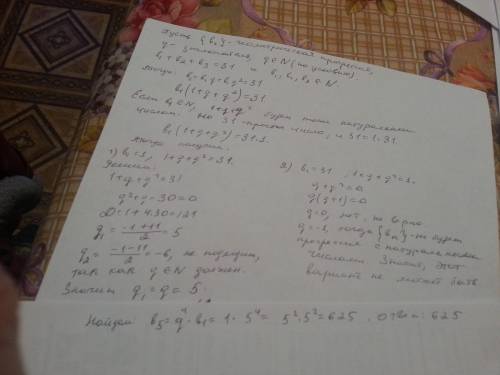 Пусть {bₙ} - геометрическая прогрессия,
q - знаменатель, q∈N (по условию).
b₁ + b₂ + b₃ = 31 b₁, b₂, b₃ ∈ N.
Тогда: b₁ + b₁q + b₁q² = 31
b₁(1+q+q²) = 31.
Если b₁∈N, 1+q+q² будет тоже натуральным
числом. Но 31 - простое число, и 31 = 1·31.
b₁(1+q+q²) = 31·1.
Тогда получим:
1) b₁ = 1, 1+q+q² = 31.
Решим:
1+q+q² = 31
q²+q-30=0
D = 1+4·30=121
q₁ = (-1+11)/2 = 5
q₂ = (-1-11)/2 = -6, не подходит,
так как q∈N должен.
Значит q₁ = q = 5.
2) b₁ = 31, 1+q+q²=1.
q+q²=0
q(q+1)=0
q=0, нет, не верно
q=-1, тогда {bₙ} - не будет
прогрессия с натуральными
числами. Значит, этот
вариант не может быть.
Найдём b₅ = q⁴·b₁ = 1·5⁴ = 5²·5² = 625. Ответ: 625